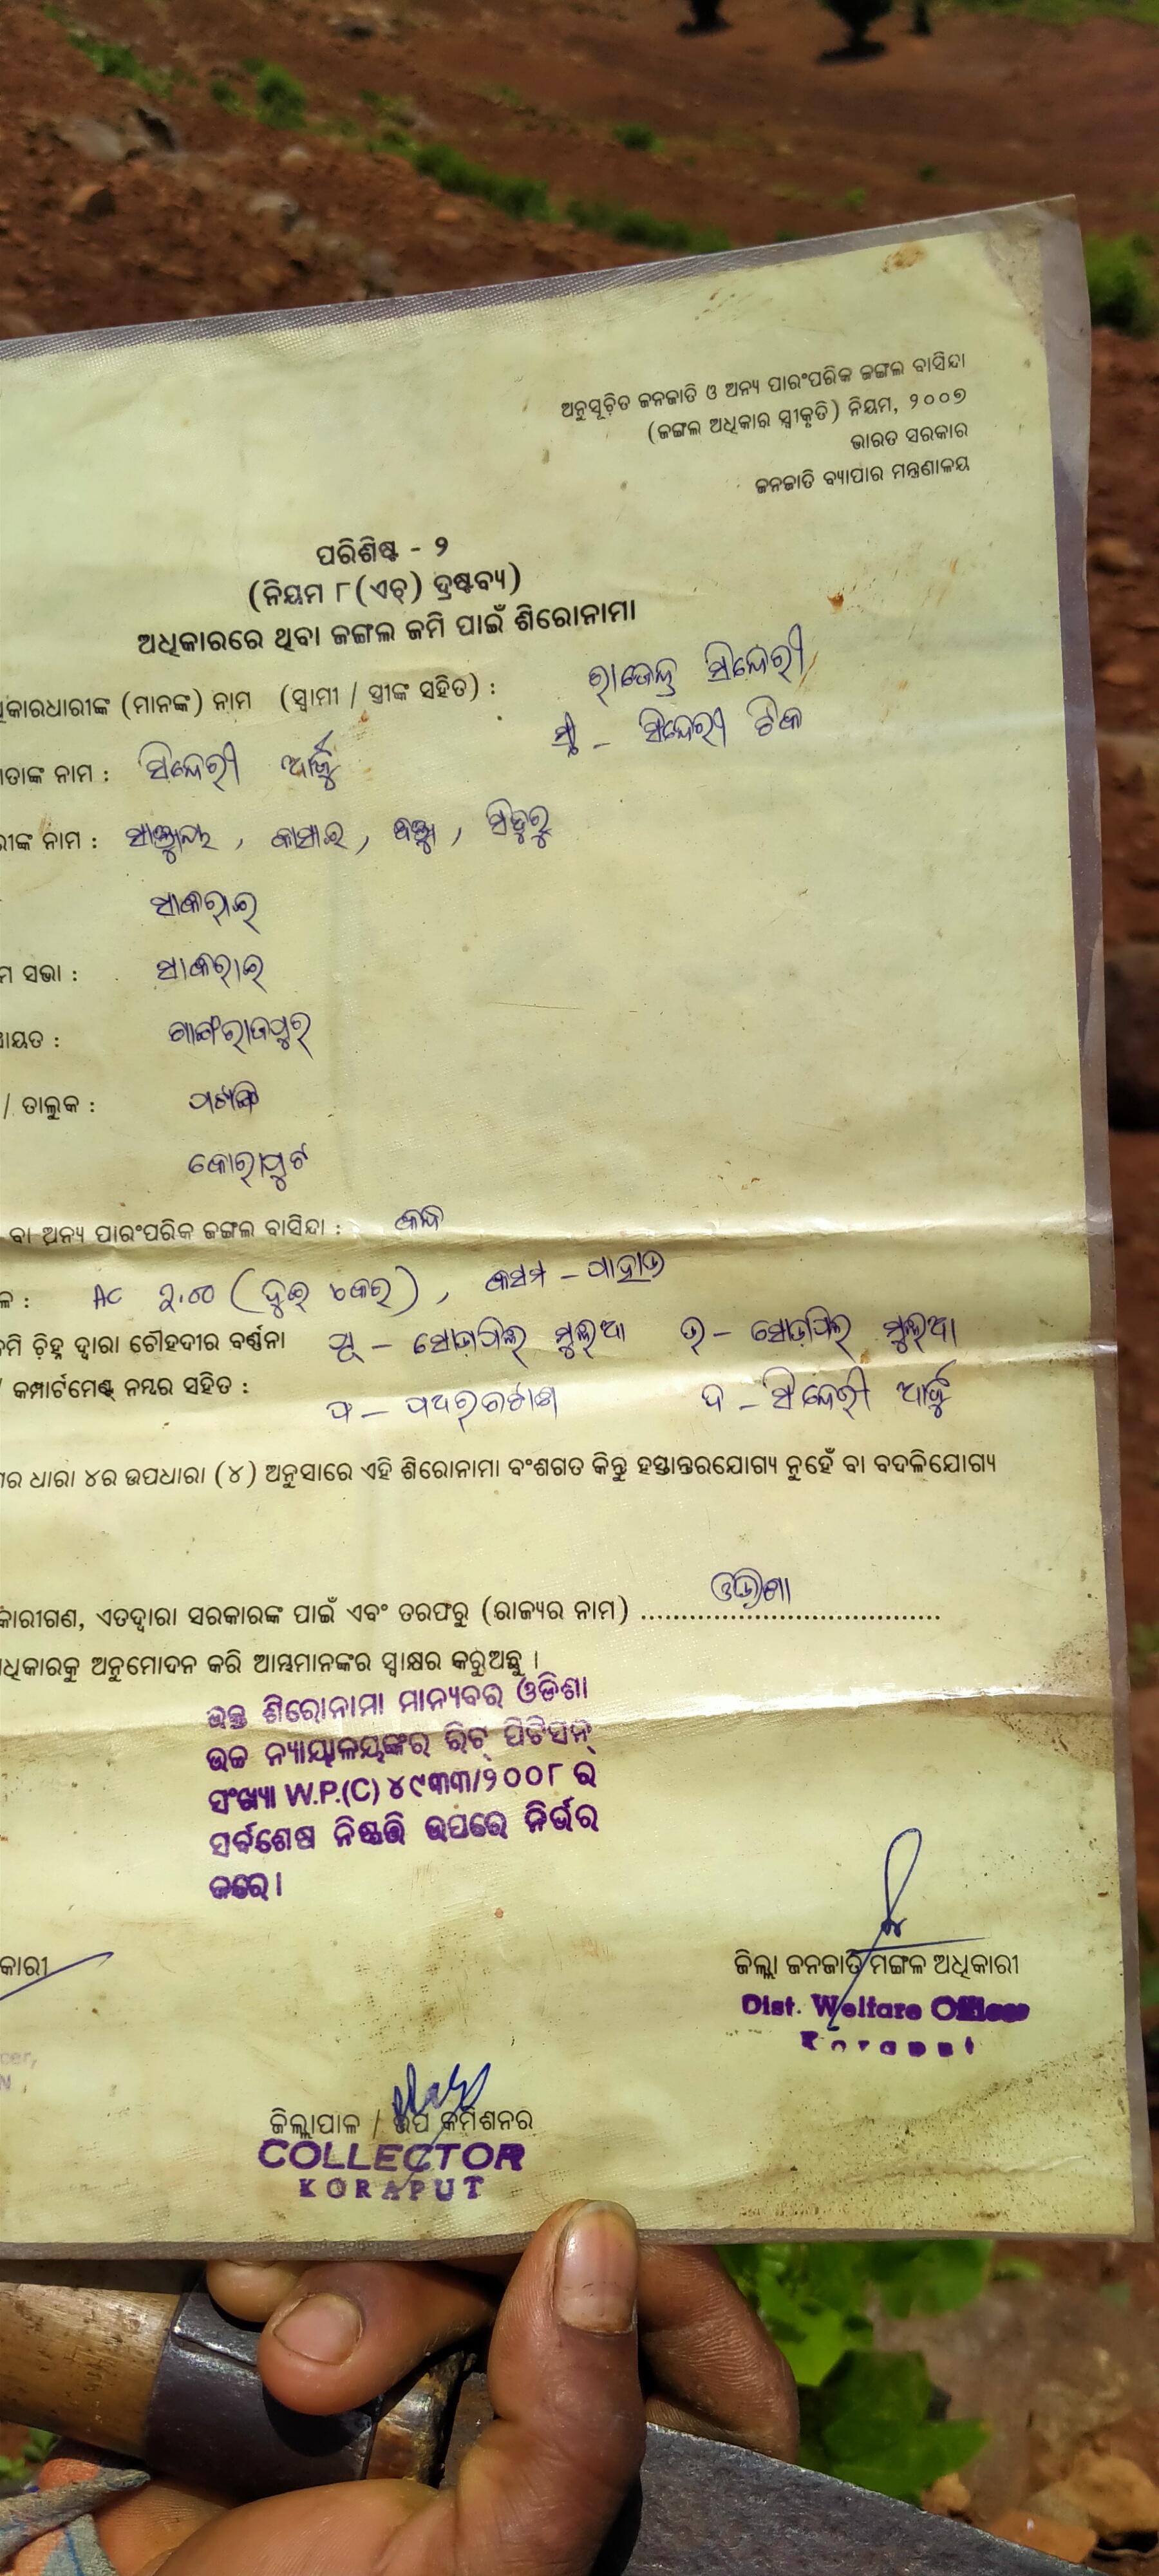 ଅନୁସୂଚିତ ଜନଜାତି ଓ ଅନ୍ୟ ପାରଂପରିକ ଜଙ୍ଗଲ ବାସିନ୍ଦା
(ଜଙ୍ଗଲ ଅଧିକାର ସ୍ୱୀକୃତି) ନିୟମ, ୨୦୦୭
ଭାରତ ସରକାର
ଜନଜାତି ବ୍ୟାପାର ମନ୍ତ୍ରଣାଳୟ
ପରିଶିଷ୍ଟ - ୨
(ନିୟମ ୮(ଏଚ୍) ଦ୍ରଷ୍ଟବ୍ୟ)
ଅଧିକାରରେ ଥିବା ଜଙ୍ଗଲ ଜମି ପାଇଁ ଶିରୋନାମା
କାରଧାରୀଙ୍କ (ମାନଙ୍କ) ନାମ (ସ୍ୱାମୀ / ସ୍ତ୍ରୀଙ୍କ ସହିତ) : ରାଜେନ୍ଦ୍ର ସିନ୍ଦେରୀ
ସ୍ତ୍ରୀ - ସିନ୍ଦେରୀ ଟିକ
ତାଙ୍କ ନାମ : ସିନ୍ଦେରୀ ଆର୍ଜୁ
ରୀଙ୍କ ନାମ :
ସାକରାଇ
ମ ସଭା : ସାକରାଇ
ାୟତ : ଗାଙ୍ଗରାଜପୁର
/ ତାଲୁକ : ପଟାଙ୍ଗି
କୋରାପୁଟ
ବା ଅନ୍ୟ ପାରଂପରିକ ଜଙ୍ଗଲ ବାସିନ୍ଦା : କନ୍ଧ
ଳ : AC ୨.୦୦ (ଦୁଇ ଏକର), କିସମ - ପାହାଡ
ମି ଚିହ୍ନ ଦ୍ୱାରା ଚୌହଦୀର ବର୍ଣ୍ଣନା ପୂ - ମୁଲିଆ ଉ - ମୁଲିଆ
/ କମ୍ପାର୍ଟମେଣ୍ଟ ନମ୍ବର ସହିତ : ପ - ଦ - ସିନ୍ଦେରୀ ଆର୍ଜୁ
ମର ଧାରା ୪ର ଉପଧାରା (୪) ଅନୁସାରେ ଏହି ଶିରୋନାମା ବଂଶଗତ କିନ୍ତୁ ହସ୍ତାନ୍ତରଯୋଗ୍ୟ ନୁହେଁ ବା ବଦଳିଯୋଗ୍ୟ
କାରୀଗଣ, ଏତଦ୍ୱାରା ସରକାରଙ୍କ ପାଇଁ ଏବଂ ତରଫରୁ (ରାଜ୍ୟର ନାମ) ଓଡିଶା
ଧିକାରକୁ ଅନୁମୋଦନ କରି ଆମ୍ଭମାନଙ୍କର ସ୍ୱାକ୍ଷର କରୁଅଛୁ ।
ଉକ୍ତ ଶିରୋନାମା ମାନ୍ୟବର ଓଡିଶା
ଉଚ୍ଚ ନ୍ୟାୟାଳୟଙ୍କର ରିଟ୍ ପିଟିସନ୍
ସଂଖ୍ୟା W.P.(C) ୪୯୩୩/୨୦୦୮ ର
ସର୍ବଶେଷ ନିଷ୍ପତ୍ତି ଉପରେ ନିର୍ଭର
କରେ।
କାରୀ
ଜିଲ୍ଲା ଜନଜାତି ମଙ୍ଗଳ ଅଧିକାରୀ
Dist. Welfare Officer
Koraput
cer,
N
ଜିଲ୍ଲାପାଳ / ଉପ କମିଶନର
COLLECTOR
KORAPUT